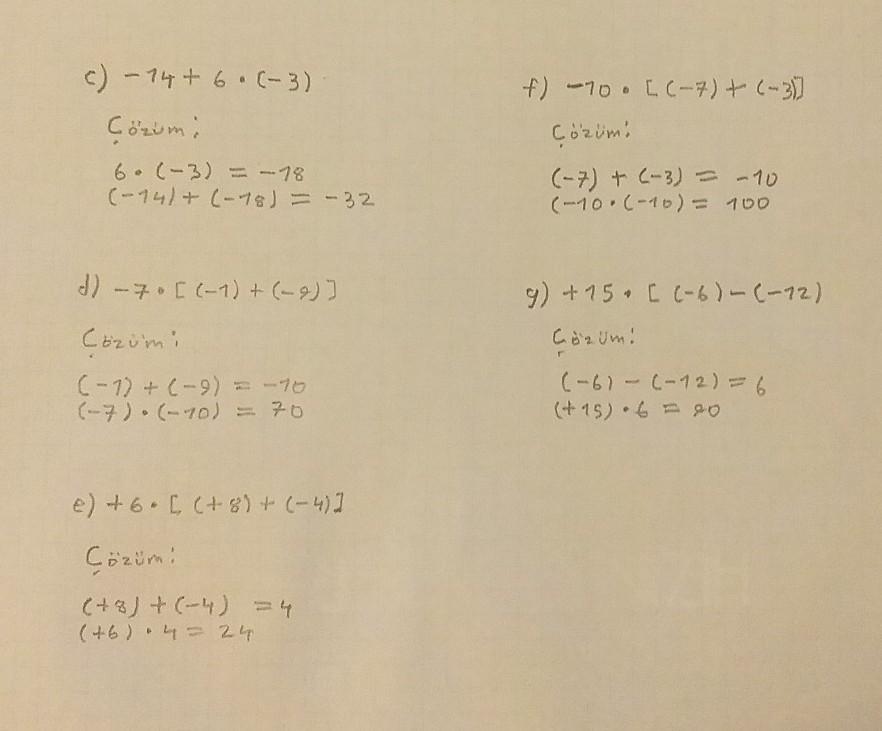 c) -14 + 6 • (-3)
Çözüm:
6 • (-3) = -18
(-14) + (-18) = -32
d) -7 • [ (-1) + (-9) ]
Çözüm:
(-1) + (-9) = -10
(-7) • (-10) = 70
e) +6 • [ (+8) + (-4) ]
Çözüm:
(+8) + (-4) = 4
(+6) • 4 = 24
f) -10 • [ (-7) + (-3)]
Çözüm:
(-7) + (-3) = -10
(-10 • (-10) = 100
g) +15 • [ (-6) - (-12)
Çözüm:
(-6) - (-12) = 6
(+15) • 6 = 90